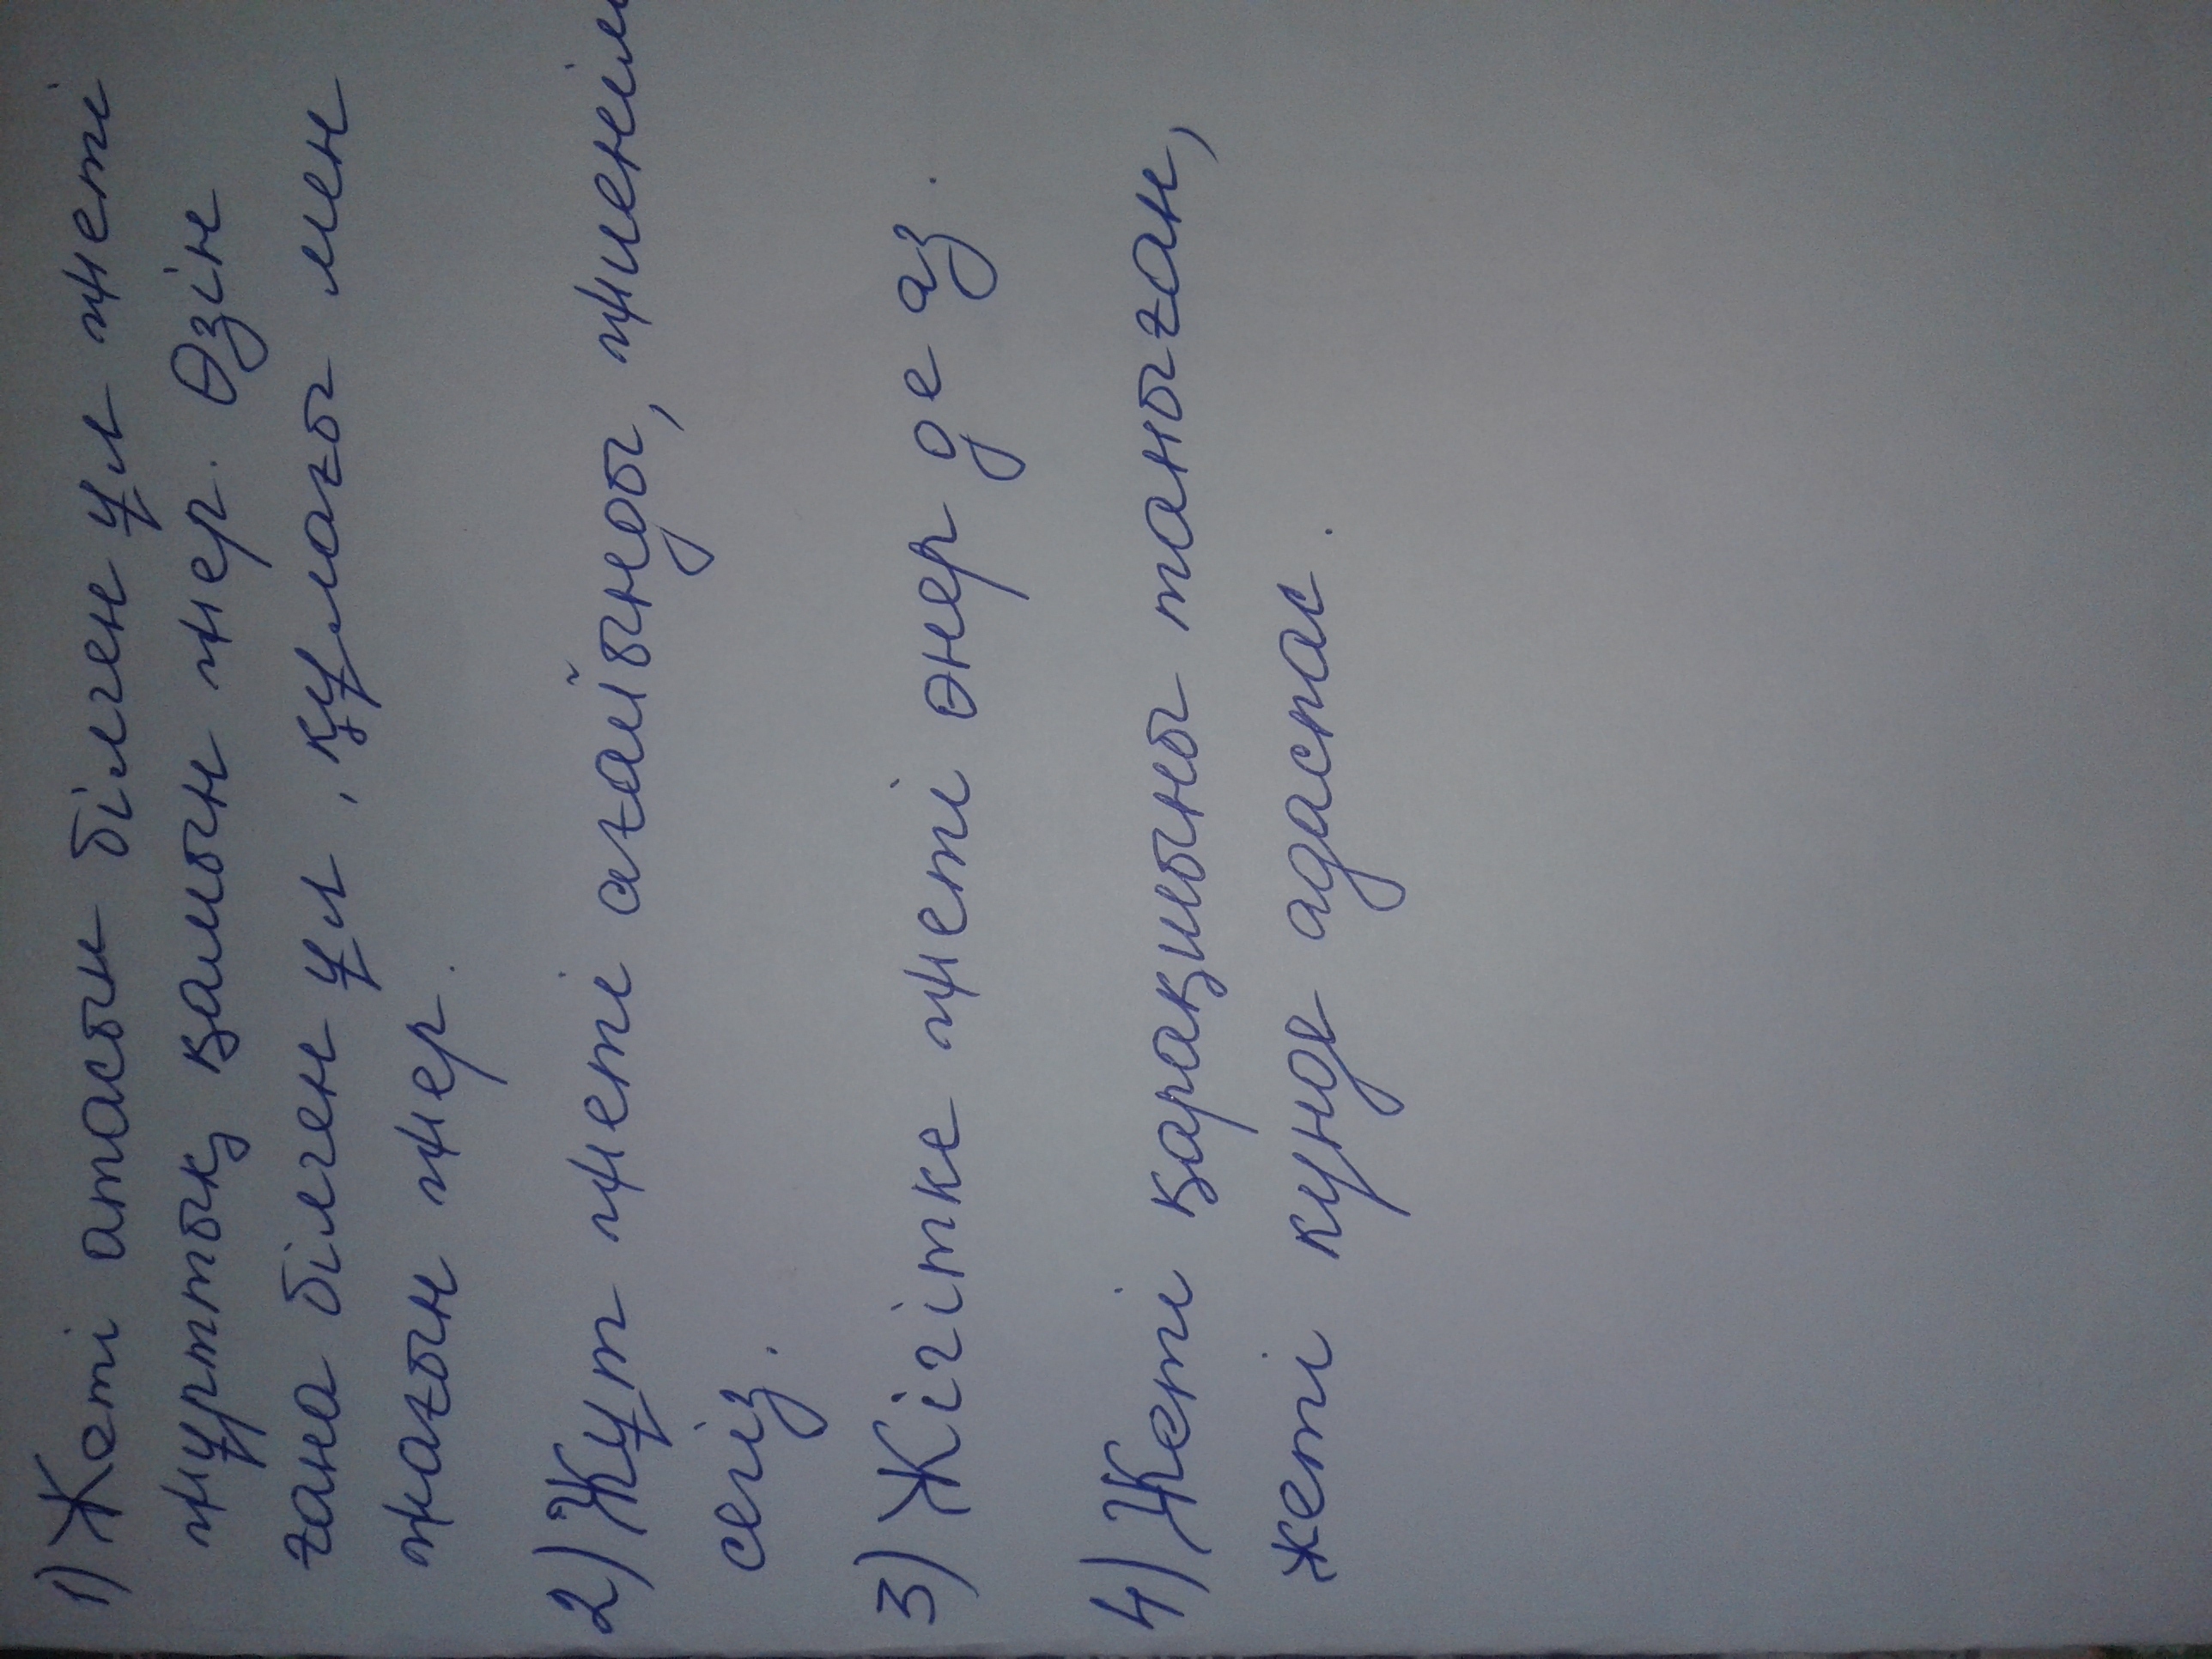 1) Жеті атасын білген ұл жеті
жұрттың қамын жер. Өзін
ғана білген ұл, құлағы мен
жағын жер.
2) Жұт жеті ағайынды, жиенім
сегіз.
3) Жігітке жеті өнер де аз.
4) Жеті қарақшыны таныған,
жеті күнде адаспас.